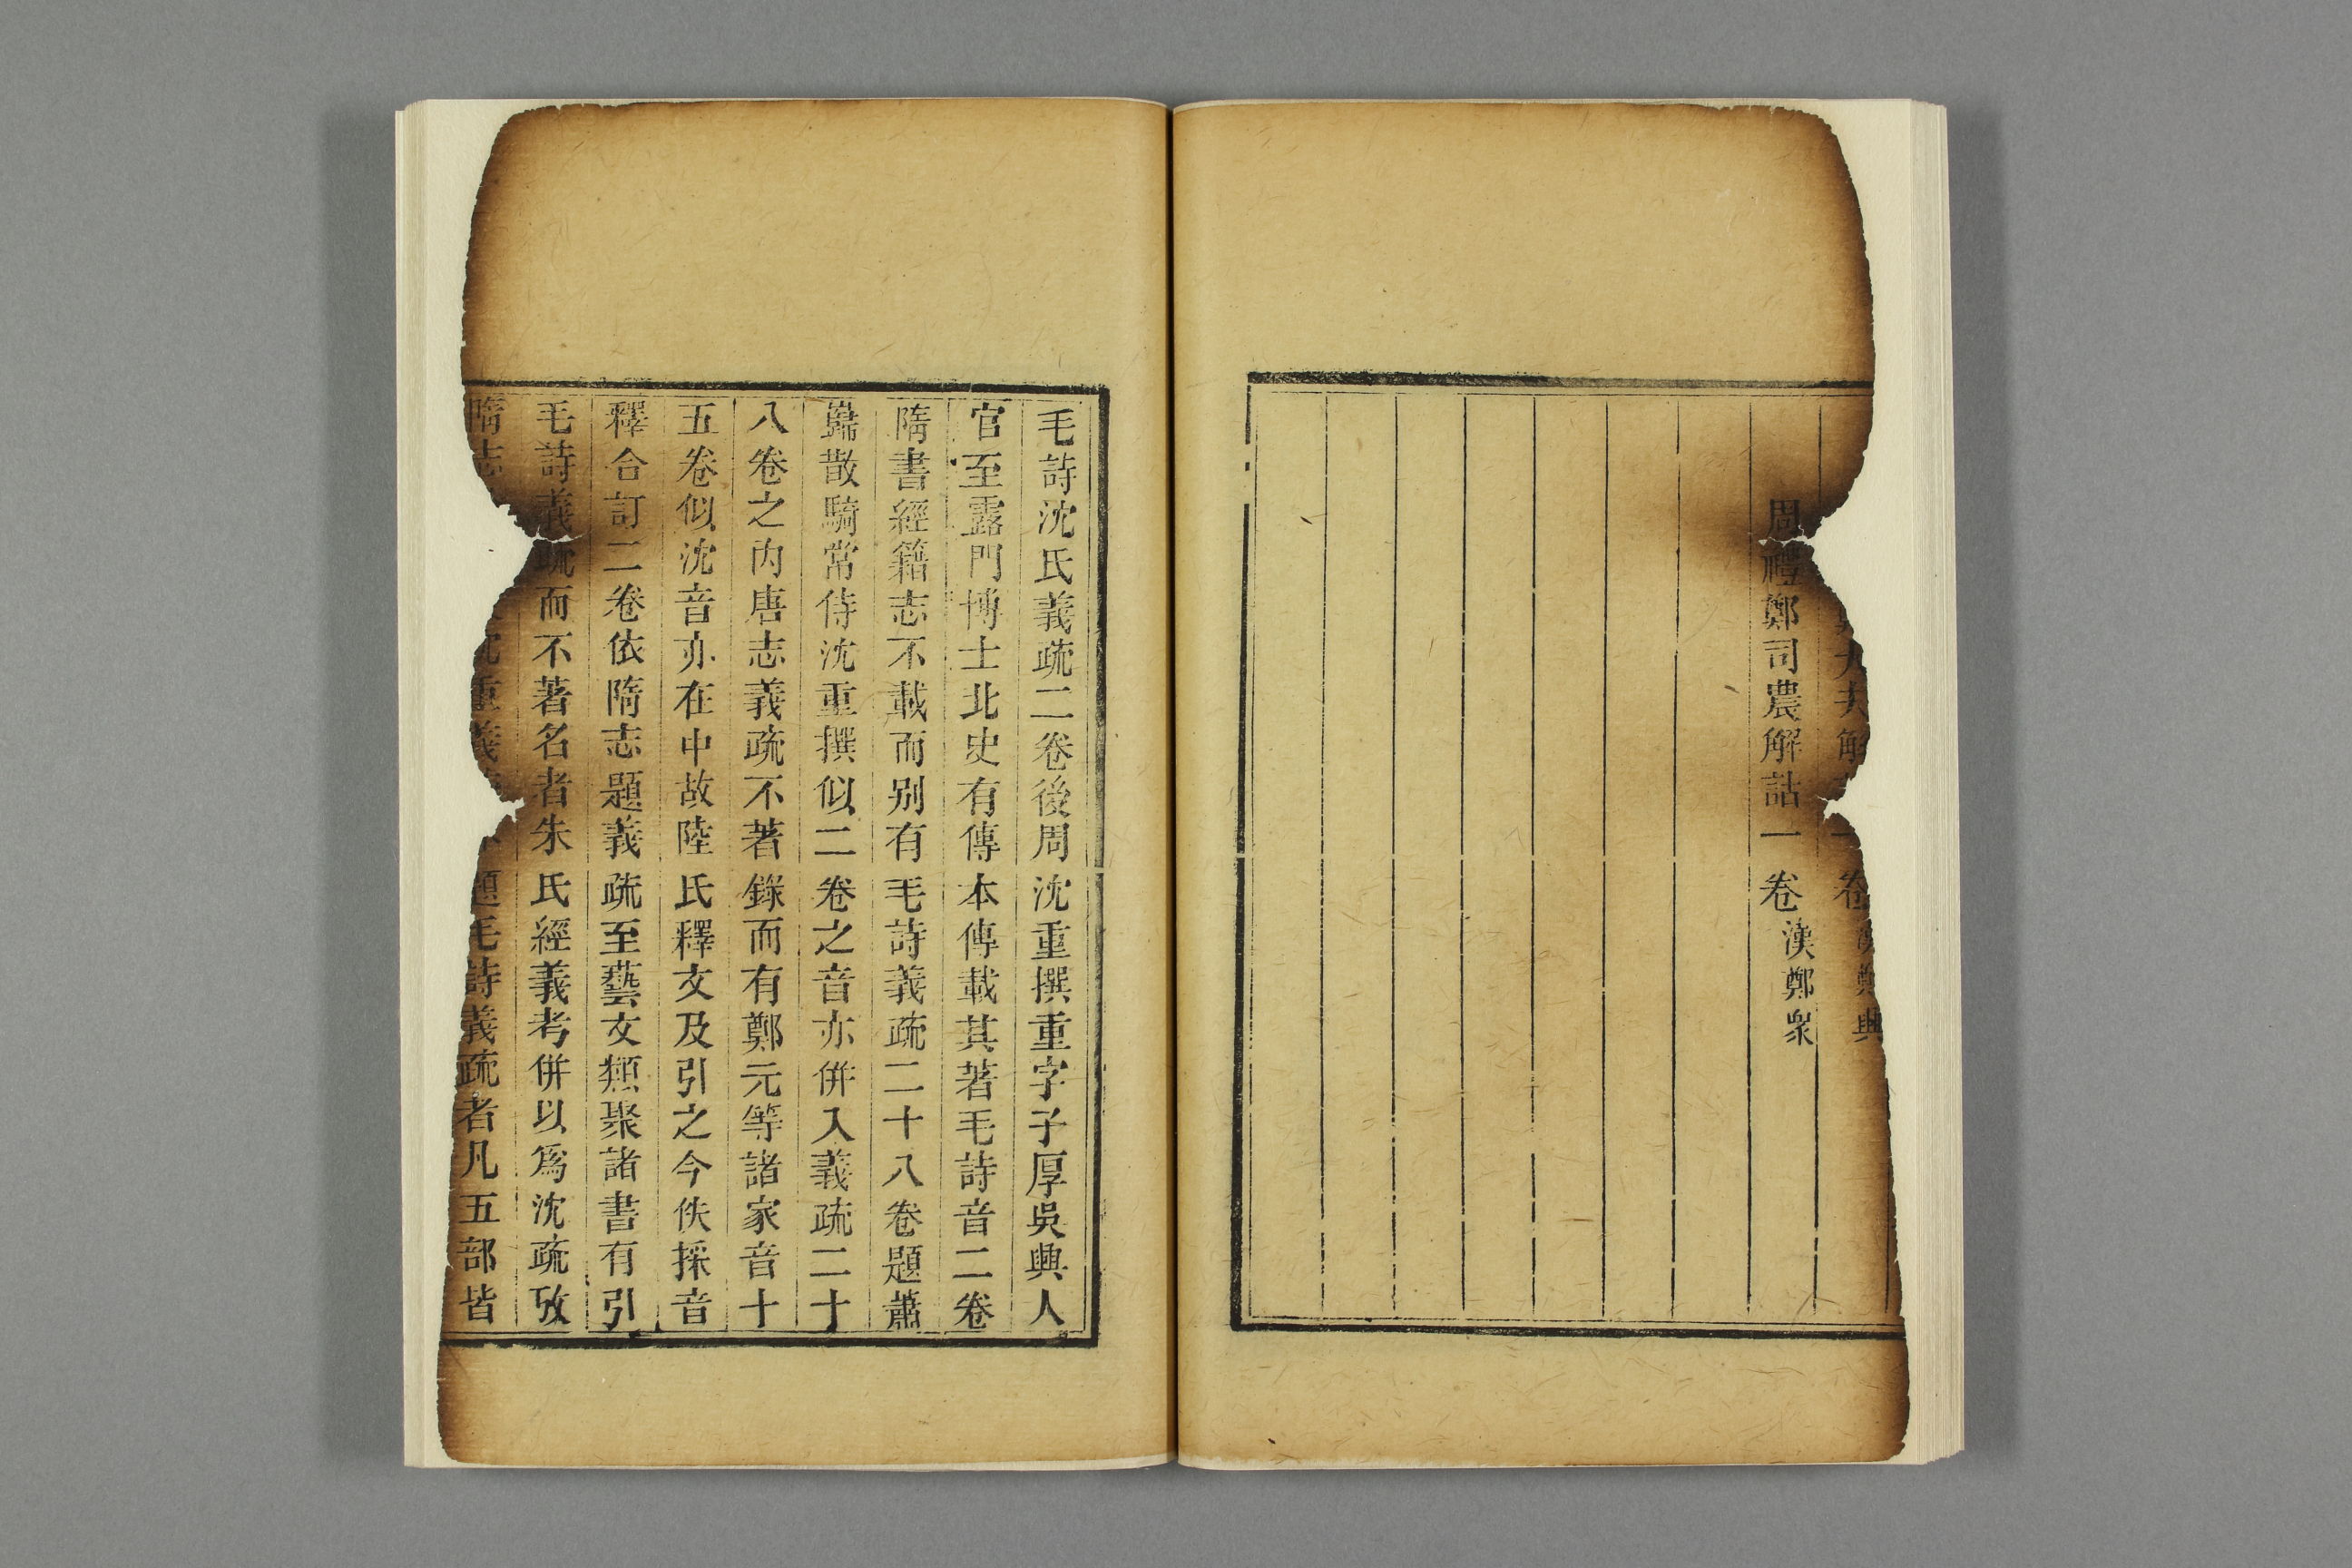 大夫解一卷 鄭興
周禮鄭司農解詁一卷 漢鄭衆
毛詩沈氏義疏二卷後周沈重撰重字子厚吳興人
官至露門博士北史有傳本傳載其著毛詩音二卷
隋書經籍志不載而别有毛詩義疏二十八卷題蕭
巋散騎常侍沈重撰似二卷之音亦併入義疏二十
八卷之内唐志義疏不著錄而有鄭元等諸家音十
五卷似沈音亦在中故陸氏釋文及引之今佚採音
釋合訂二卷依隋志題義疏至藝文類聚諸書有引
毛詩義疏而不著名者朱氏經義考併以爲沈疏攷
隋志沈重義題毛詩義疏者凡五部皆